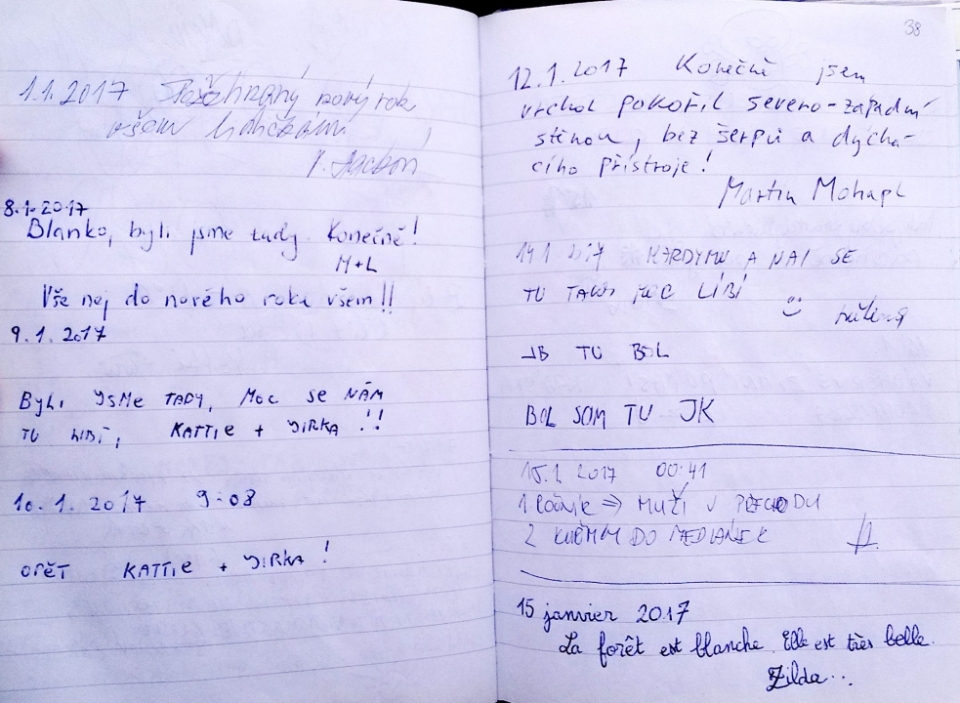 1.1.2017 nový rok
všem
8.1.2017
Blanko, byli jsme tady. Konečně!
M+L
Vše nej do nového roku všem!!
9.1.2017
BYLI JSME TADY, MOC SE NÁM
TU LIBÍ, KATTIE + JIRKA !!
10.1.2017 9:08
OPĚT KATTIE + JIRKA !
38
12.1.2017 Konečně jsem
vrchol pokořil severo-západní
stěnou, bez šerpů a dýcha-
cího přístroje!
Martin Mohapl
A NAJ SE
TU LÍBÍ
JB TU BOL
BOL SOM TU JK
15.1.2017 00:41
1 Ročník ⇒ MUŽI V PŘECHODU
2 DO MEDLÁNEK
15 janvier 2017
La forêt est blanche. Elle est très belle.
Zilda...